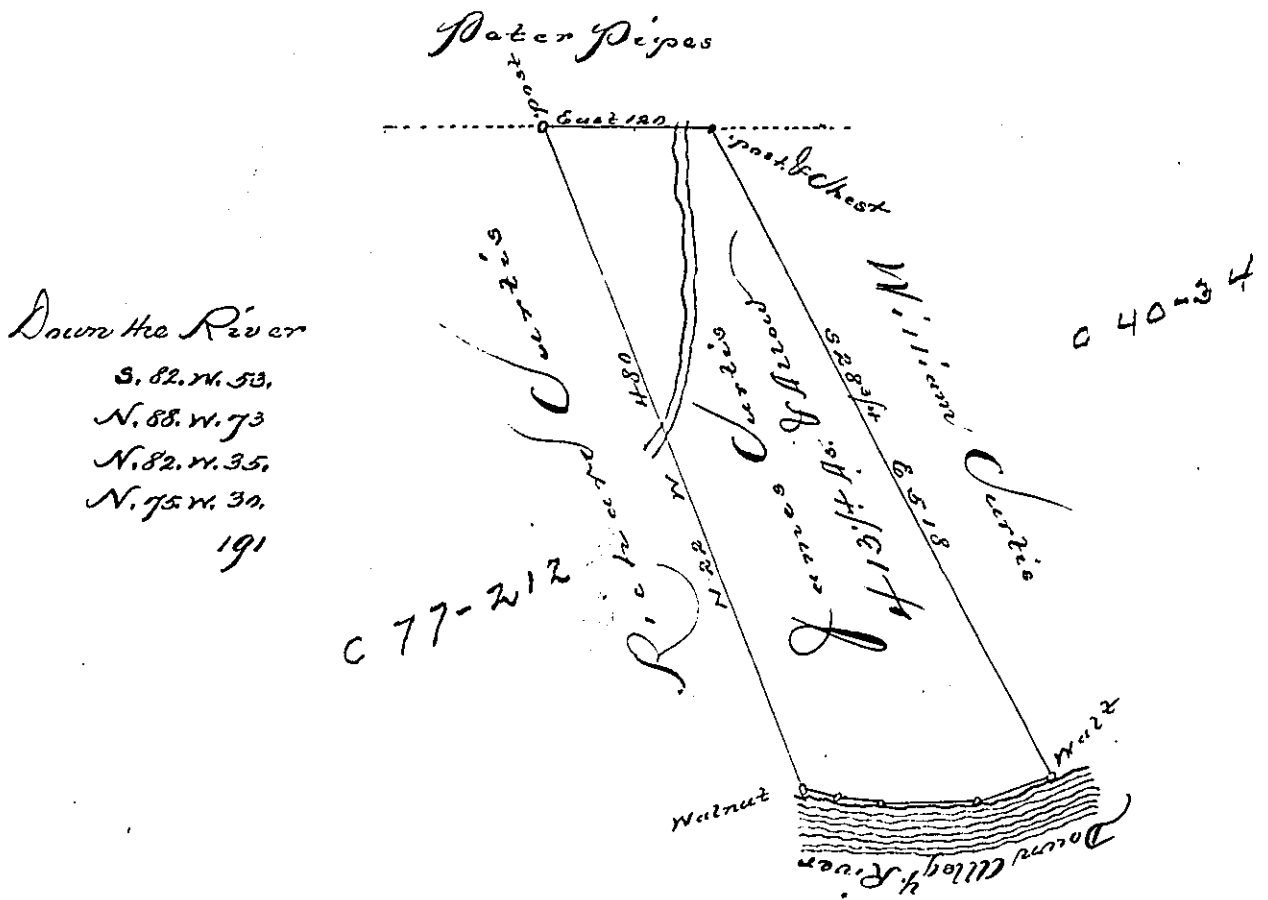 Pater Pipes
post
East 120
post & Chest
Down the River
S. 82. W. 53.
N. 88. W. 73
N. 82. W. 35.
N. 75. W. 30.
191
Richard Curtis
N 22 W 480
James Curtis
413 & Allow
S 28 3/4 E 518
William Curtis
C 40-34
C 77-212
Walnut
Waln't
Down Alleg'y River